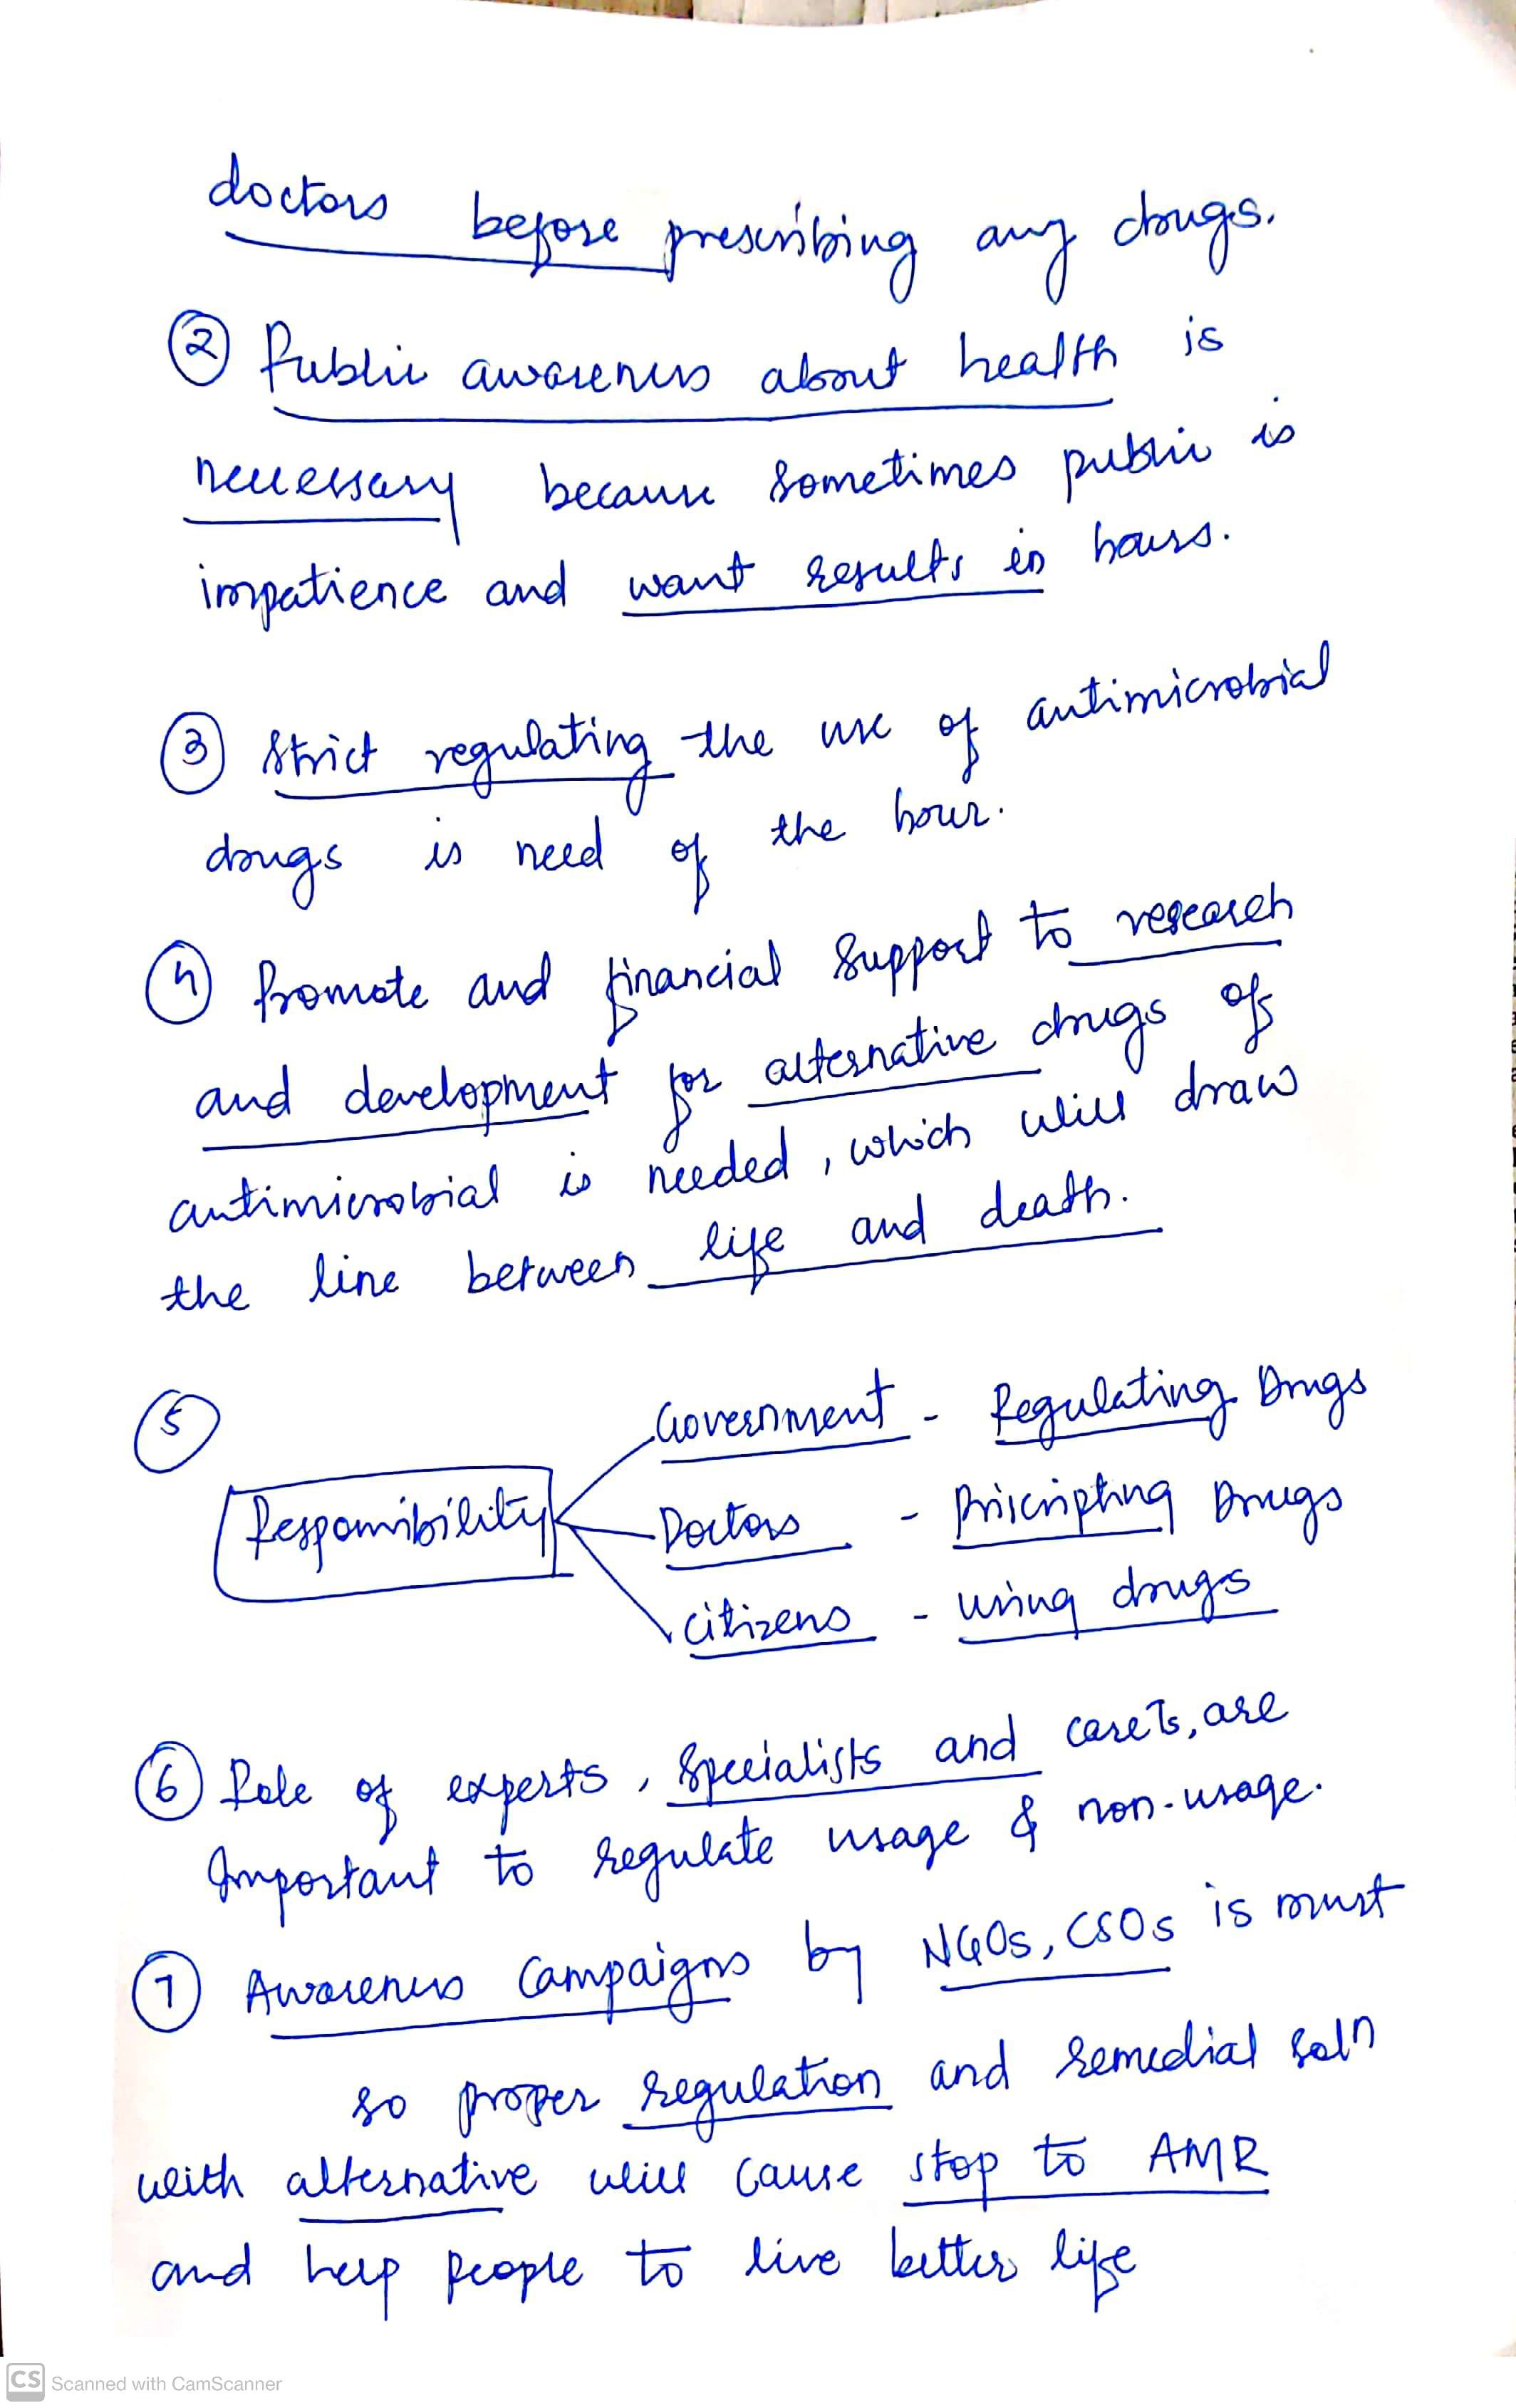 doctors before prescribing any drugs.
② Public awareness about health is
necessary because sometimes public is
impatience and want results in hours.
③ Strict regulating the use of antimicrobial
drugs is need of the hour.
④ Promote and financial support to research
and development for alternative drugs of
antimicrobial is needed, which will draw
the line between life and death.
⑤
Government - Regulating Drugs
Responsibility
Doctors - Priscripting Drugs
Citizens - using drugs
⑥ Role of experts, Specialists and are
Important to regulate usage & non-usage.
⑦ Awareness Campaigns by NGOs, CSOs is must
so proper regulation and remedial soln
with alternative will cause stop to AMR
and help people to live better life
CS Scanned with CamScanner